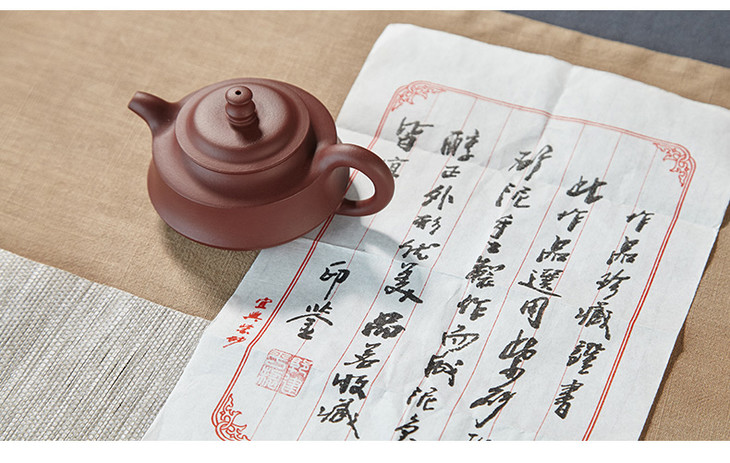 作品珍藏證書
此作品選用紫砂
矿泥手工製作而成泥
醇正外形优美品善收藏
皆
印鉴
宜興紫砂